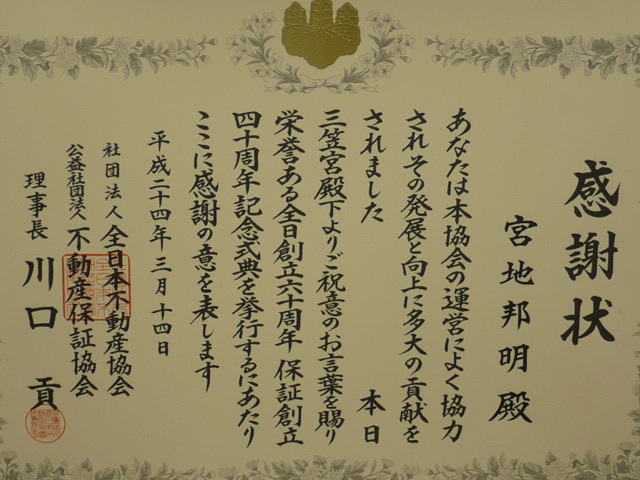 感謝状
宮地邦明殿
あなたは本協会の運営によく協力
されその発展と向上に多大の貢献を
されました　本日
三笠宮殿下よりご祝意のお言葉を賜り
栄誉ある全日創立六十周年 保証創立
四十周年記念式典を挙行するにあたり
ここに感謝の意を表します
平成二十四年三月十四日
社団法人 全日本不動産協会
公益社団法人 不動産保証協会
理事長 川口 貢